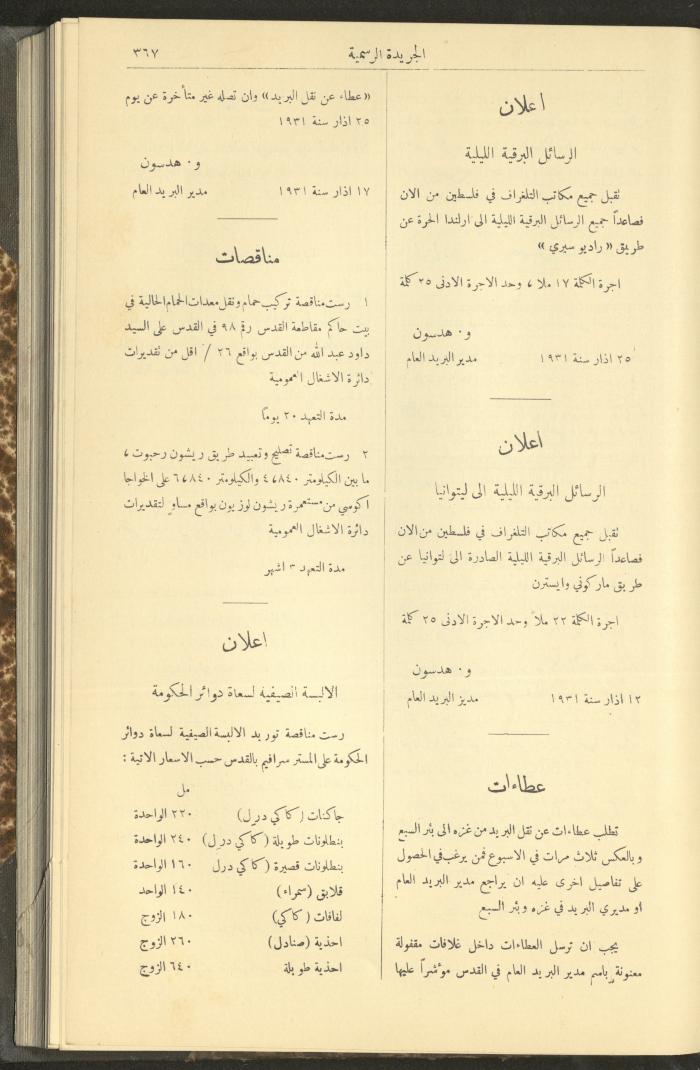 الجريدة الرسمية
٣٦٧
اعلان
الرسائل البرقية الليلية
نقبل جميع مكاتب التلغراف في فلسطين من الان
فصاعداً جميع الرسائل البرقية الليلية الى ارلندا الحرة عن
طريق «راديو سيري»
اجرة الكلمة ١٧ ملا، وحد الاجرة الادنى ٢٥ كلمة
و. هدسون
٢٥ اذار سنة ١٩٣١ مدير البريد العام
اعلان
الرسائل البرقية الليلية الى ليتوانيا
نقبل جميع مكاتب التلغراف في فلسطين من الان
فصاعداً الرسائل البرقية الليلية الصادرة الى لتوانيا عن
طريق ماركوني وايسترن
اجرة الكلمة ٢٢ ملاً وحد الاجرة الادنى ٢٥ كلمة
و. هدسون
١٢ اذار سنة ١٩٣١ مديز البريد العام
عطاءات
تطلب عطاءات عن نقل البريد من غزه الى بئر السبع
وبالعكس ثلاث مرات في الاسبوع فمن يرغب في الحصول
على تفاصيل اخرى عليه ان يراجع مدير البريد العام
او مديري البريد في غزه وبئر السبع
يجب ان ترسل العطاءات داخل غلافات مقفولة
معنونة باسم مدير البريد العام في القدس مؤشراً عليها
«عطاء عن نقل البريد» وان تصله غير متأخرة عن يوم
٢٥ اذار سنة ١٩٣١
و. هدسون
١٧ اذار سنة ١٩٣١ مدير البريد العام
مناقصات
١ رست مناقصة تركيب حمام ونقل معدات الحمام الحالية في
بيت حاكم مقاطعة القدس رقم ٩٨ في القدس على السيد
داود عبد الله من القدس بواقع ٢٦ / اقل من نقديرات
دائرة الاشغال العمومية
مدة التعهد ٢٠ يوماً
٢ رست مناقصة تصليح وتعبيد طريق ريشون رحبوت،
ما بين الكيلومتر ٤٧٨٤٠ والكيلومتر ٦٧٨٤٠ على الخواجا
اكوسي من مستعمرة ريشون لوزيون بواقع مساوٍ لتقديرات
دائرة الاشغال العمومية
مدة التعهد ٣ اشهر
اعلان
الالبسة الصيفية لسعاة دوائر الحكومة
رست مناقصة توريد الالبسة الصيفية لسعاة دوائر
الحكومة على المستر سرافيم بالقدس حسب الاسعار الاتية:
مل
جاكتات (كاكي درل) ٢٢٠ الواحدة
بنطلونات طويلة (كاكي درل) ٢٤٠ الواحدة
بنطلونات قصيرة (كاكي درل ١٦٠ الواحدة
قلابق (سمراء) ١٤٠ الواحد
لفافات (كاكي) ١٨٠ الزوج
احذية (صنادل) ٢٦٠ الزوج
احذية طويلة ٦٤٠ الزوج